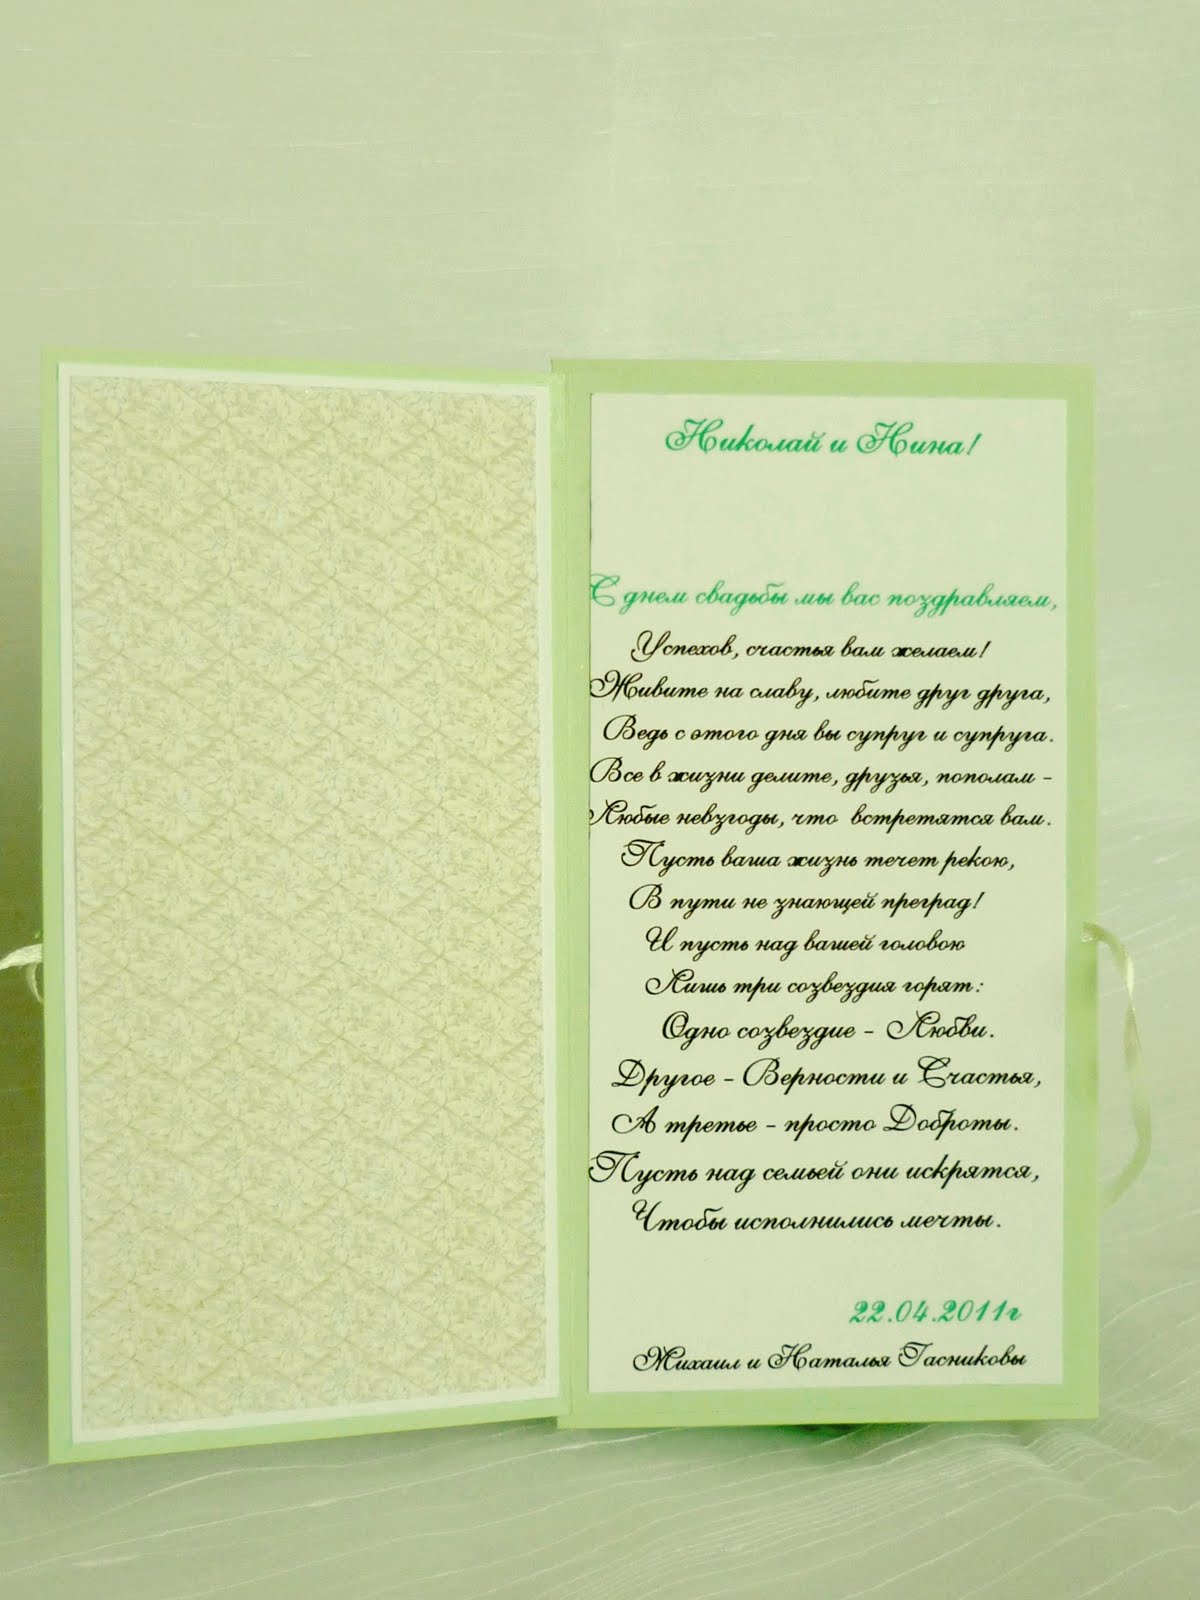 Николай и Нина!
С днем свадьбы мы вас поздравляем,
Успехов, счастья вам желаем!
Живите на славу, любите друг друга,
Ведь с этого дня вы супруг и супруга.
Все в жизни делите, друзья, пополам -
Любые невзгоды, что встретятся вам.
Пусть ваша жизнь течет рекою,
В пути не знающей преград!
И пусть над вашей головою
Лишь три созвездия горят:
Одно созвездие - Любви.
Другое - Верности и Счастья,
А третье - просто Доброты.
Пусть над семьей они искрятся,
Чтобы исполнились мечты.
22.04.2011г
Михаил и Наталья Гасниковы